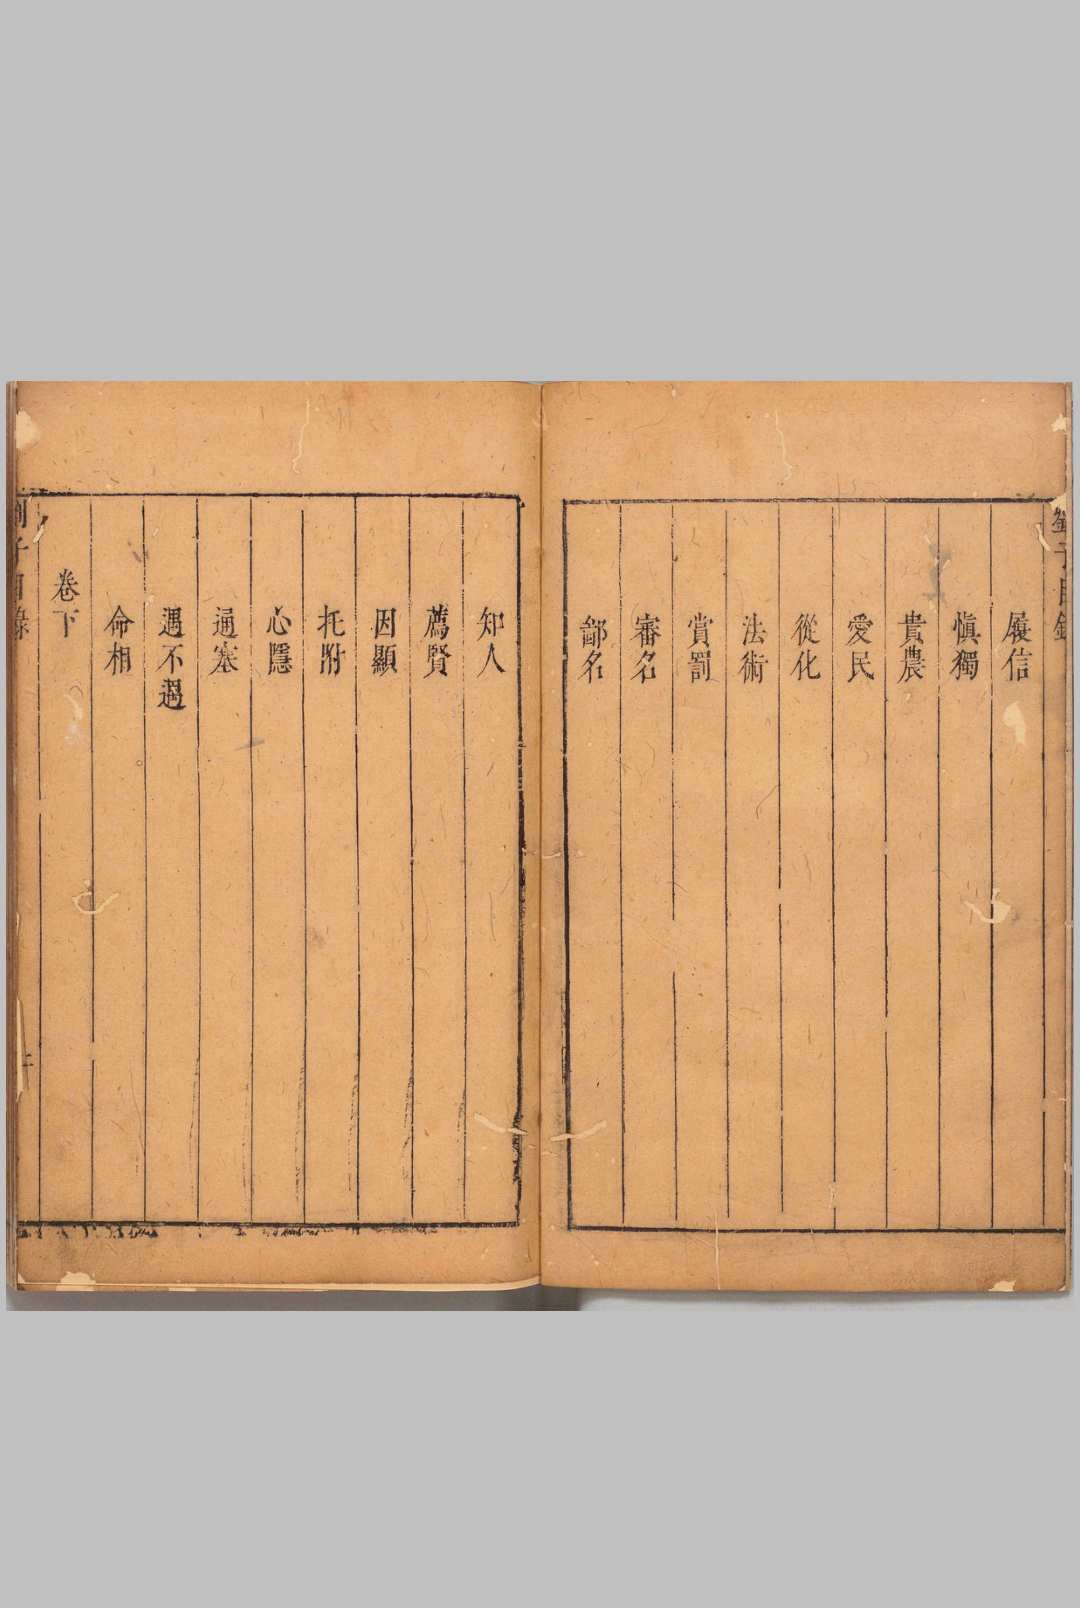 劉子目錄
履信
慎獨
貴農
愛民
從化
法術
賞罰
審名
鄙名
知人
薦賢
因顯
托附
心隱
通塞
遇不遇
命相
卷下
劉子目錄